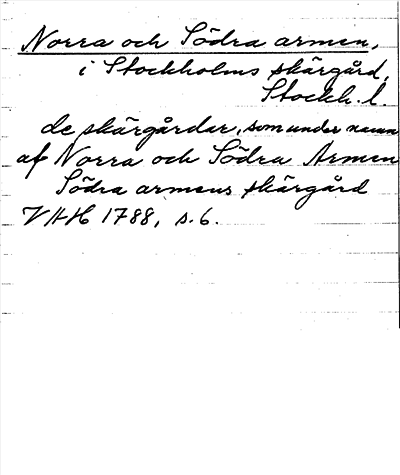 Norra och Södra armen,
i Stockholms skärgård,
Stockh. l.
de skärgårdar, som under namn
af Norra och Södra Armen
Södra armens skärgård
VAH 1788, s. 6.